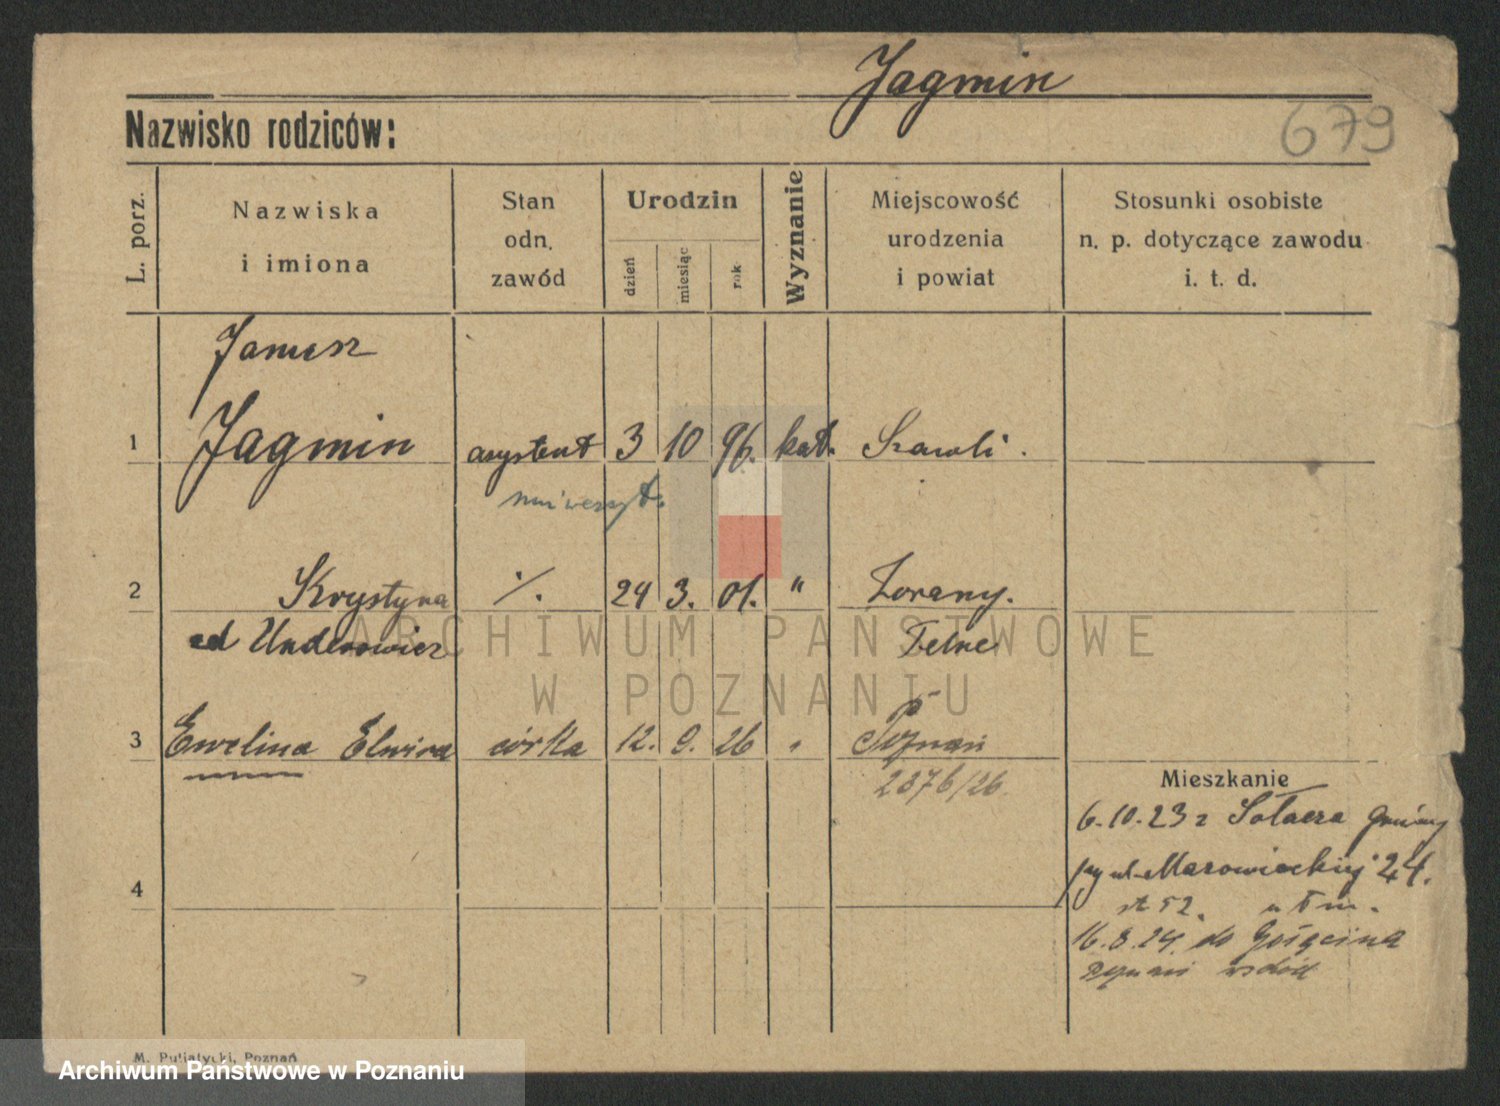 Jagmin
679
Nazwisko rodziców:
L. porz.
Nazwiska
i imiona
Stan
odn.
zawód
Urodzin
dzień
miesiąc
rok
Wyznanie
Miejscowość
urodzenia
i powiat
Stosunki osobiste
n. p. dotyczące zawodu
i. t. d.
Janusz
1 Jagmin asystent 3 10 96. kat. Szawli.
uniwersyt.
2 Krystyna ./. 24 3. 01. "
ARCHIWUM PAŃSTWOWE
W POZNANIU
3 Ewelina Elwira córka 12. 9. 26 " Poznań
2376/26.
Mieszkanie
6.10.23 z Sołacza
Mazowieckiej 24.
4
16.8.24. do Golęcina
M. Putiatycki, Poznań
Archiwum Państwowe w Poznaniu